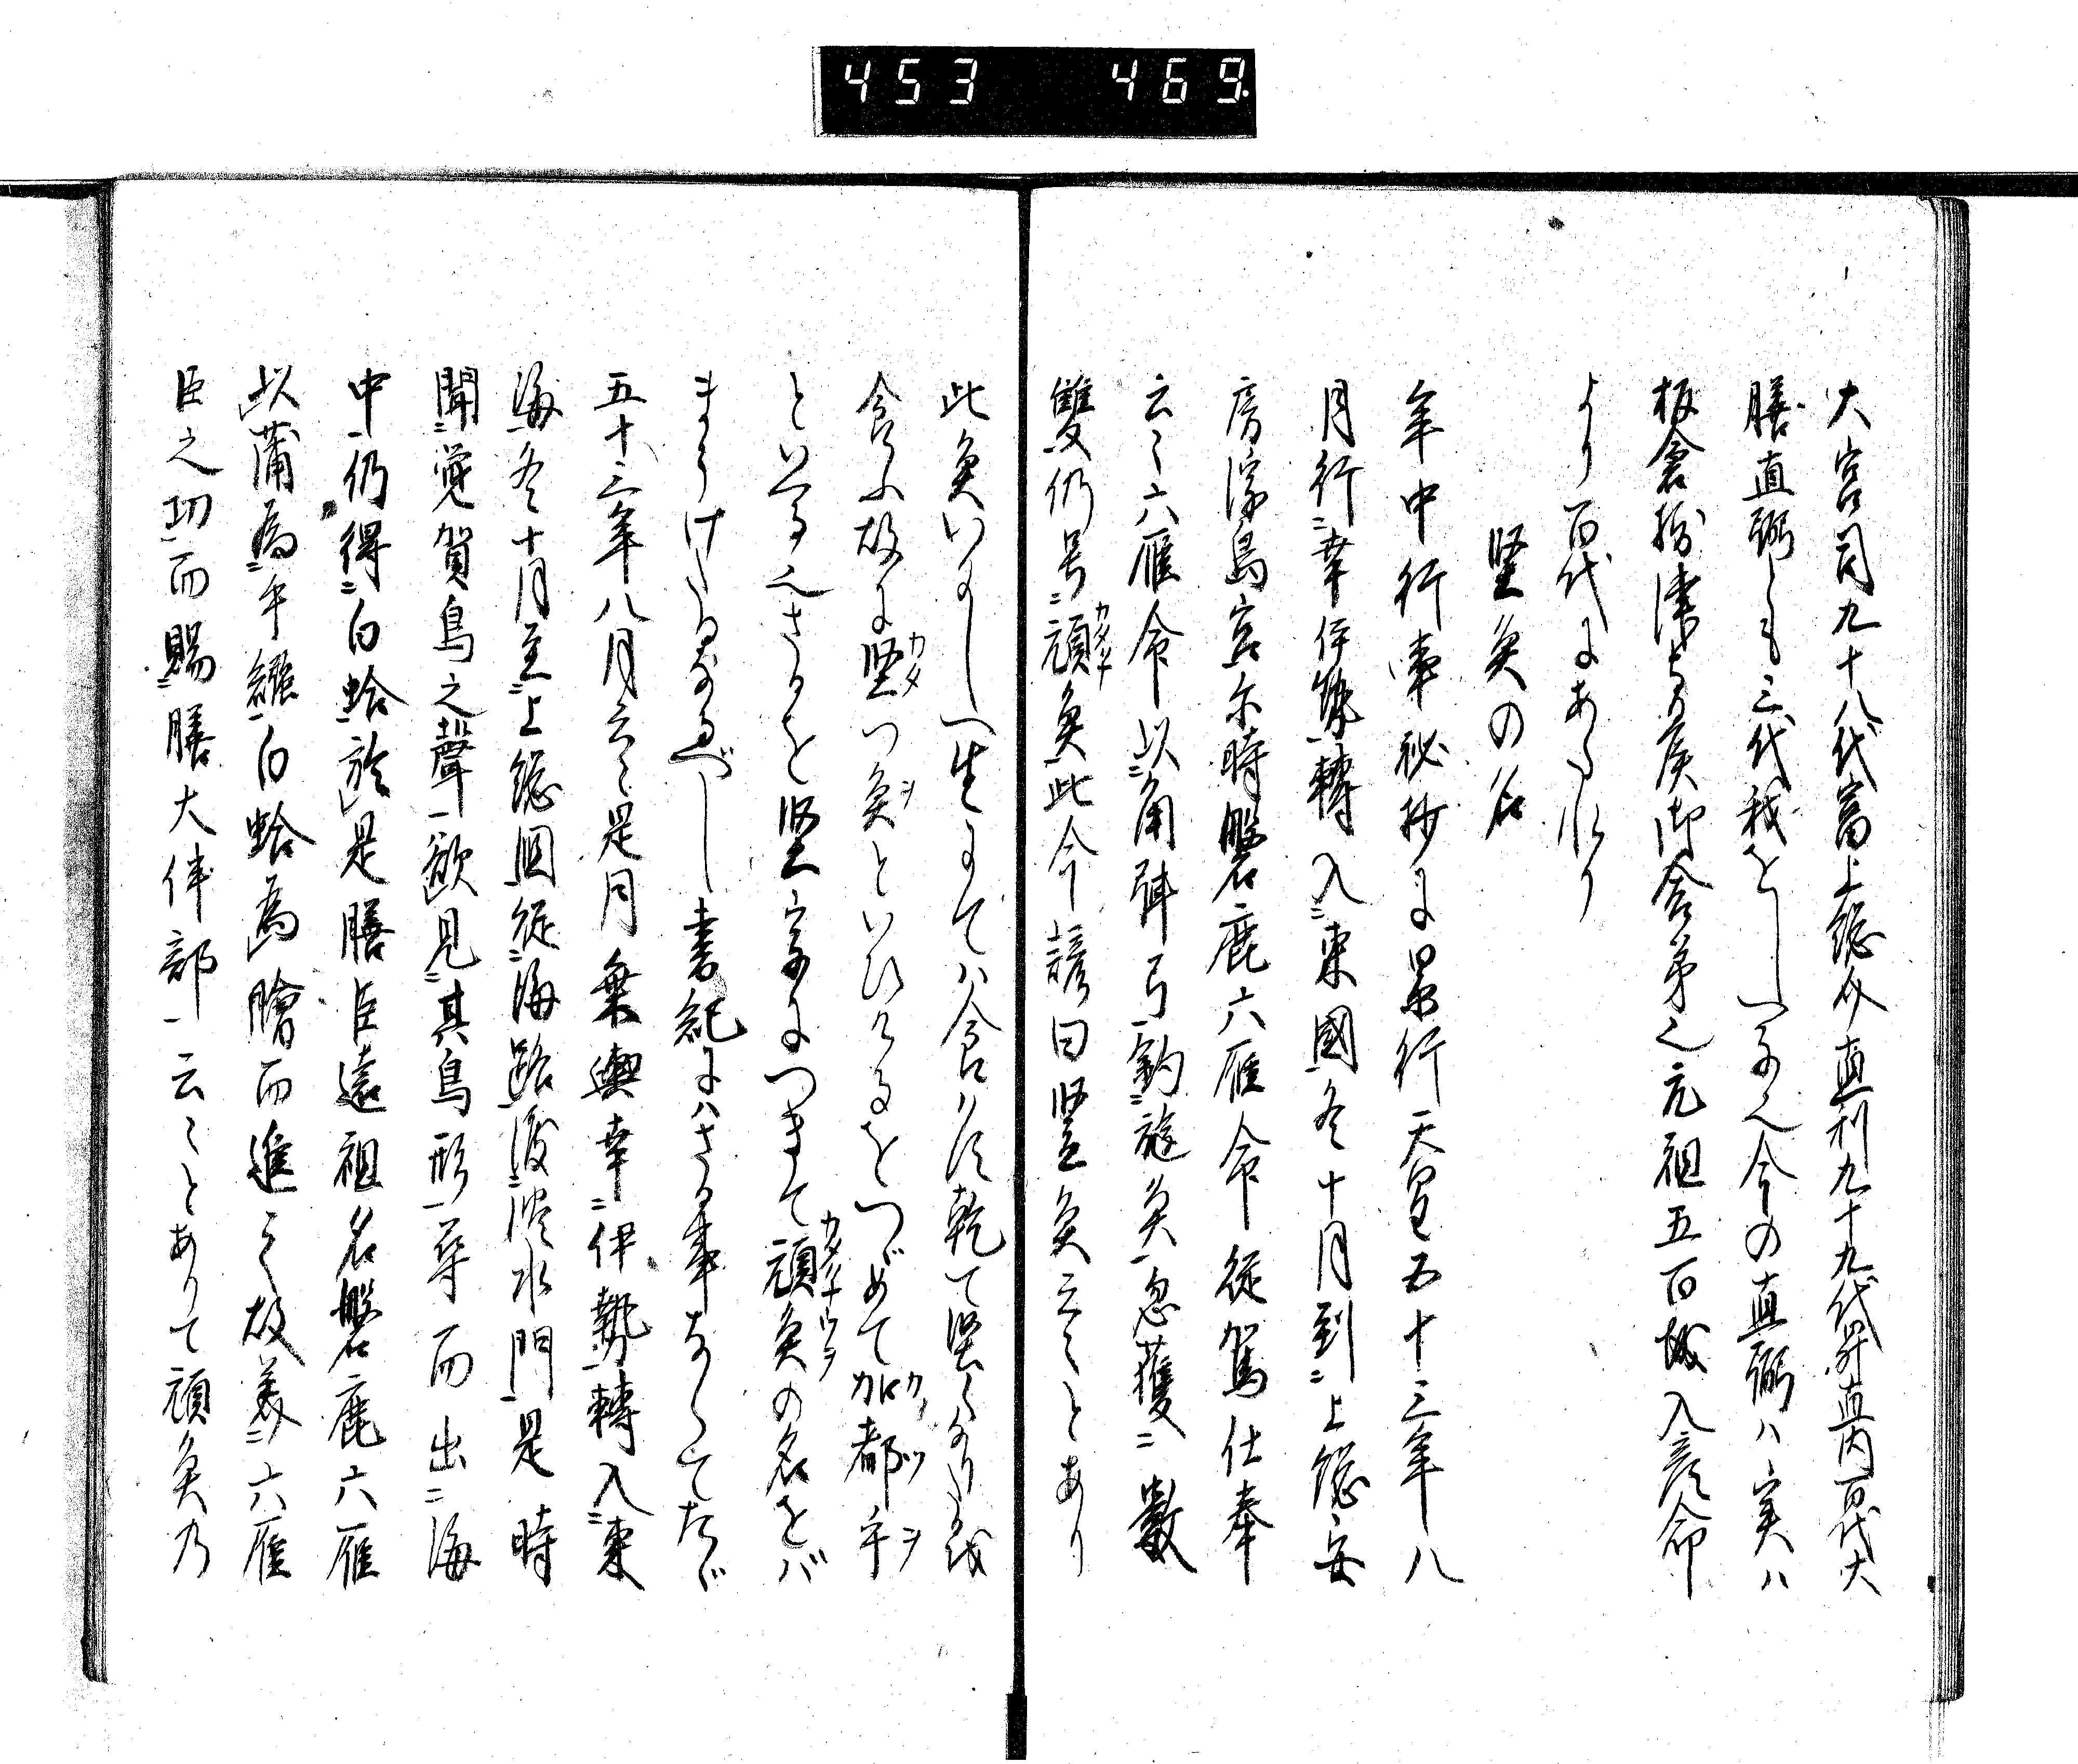 453 469
大宮司九十八代富上総介直利九十九代昇直内百代大
膳直弼しも三代我をしへ子也今の直弼ハ実ハ
板倉摂津守侯御舎弟之元祖五百城入彦命
より百代にあたれり
堅魚の名
年中行事秘抄に景行天皇五十三年八
月行幸伊勢轉入東國冬十月到上総安
房浮島宮尓時磐鹿六雁命従駕仕奉
云々六雁命以角弭弓釣遊魚忽獲数
雙仍号頑魚此今諺曰堅魚云々とあり
此魚いにしへ生にてハ食ハす乾て堅くなりたるを
食ふ故に堅つ魚といひけるをつゞめて加都乎
といへる也さるを堅字につきて頑魚の名をバ
まうけたるなるべし書紀にハさる事なくてたゞ
五十三年八月云々是月乗輿幸伊勢轉入東
海冬十月至上総国従海路渡淡水門是時
聞覚賀鳥之聲欲見其鳥形尋而出海
中仍得白蛤於是膳臣遠祖名磐鹿六雁
以蒲為手繦白蛤為膾而進之故美六雁
臣之功而賜膳大伴部云々とありて頑魚乃